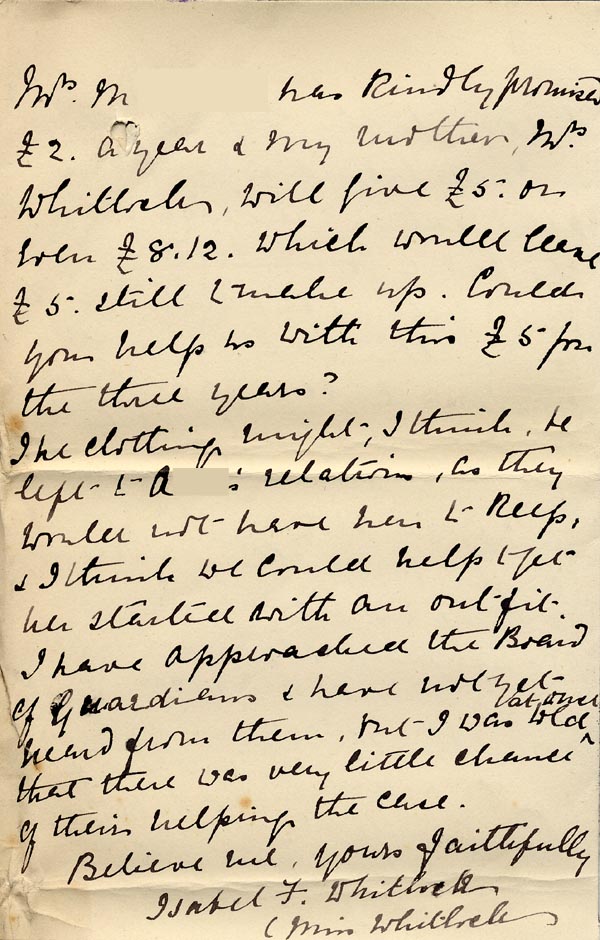 Mrs. M has kindly promised
£2. a year & my mother, Mrs.
Whitlock, will give £5. or
even £8.12. which would leave
£5. still to make up. Could
you help us with this £5 for
the three years?
The clothing might, I think, be
left to A 's relations, as they
would not have her to keep,
& I think we could help to get
her started with an outfit.
I have approached the Board
of Guardians & have not yet
heard from them, but I was told ^at once
that there was very little chance
of their helping the case.
Believe me, yours faithfully
Isabel F. Whitlock
(Miss Whitlock